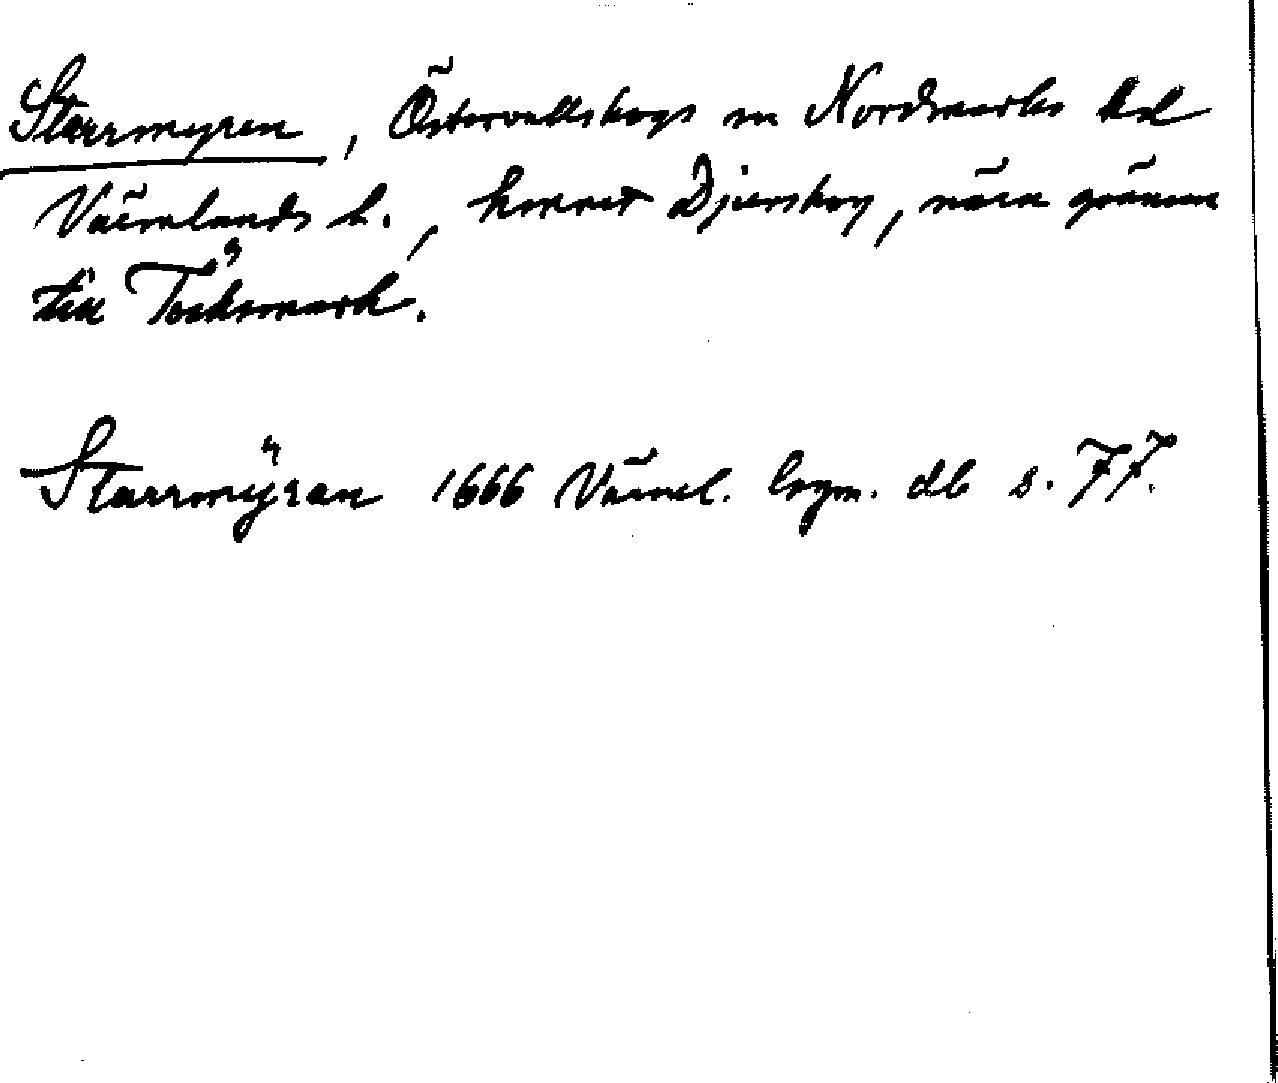 Starrmyren, Östervallskogs sn Nordmarks hd
Värmlands l., hemmet Djuvskog, nära gränsen
till Töcksmark.
Starrmÿran 1666 Värml. lrym. db s. 77.